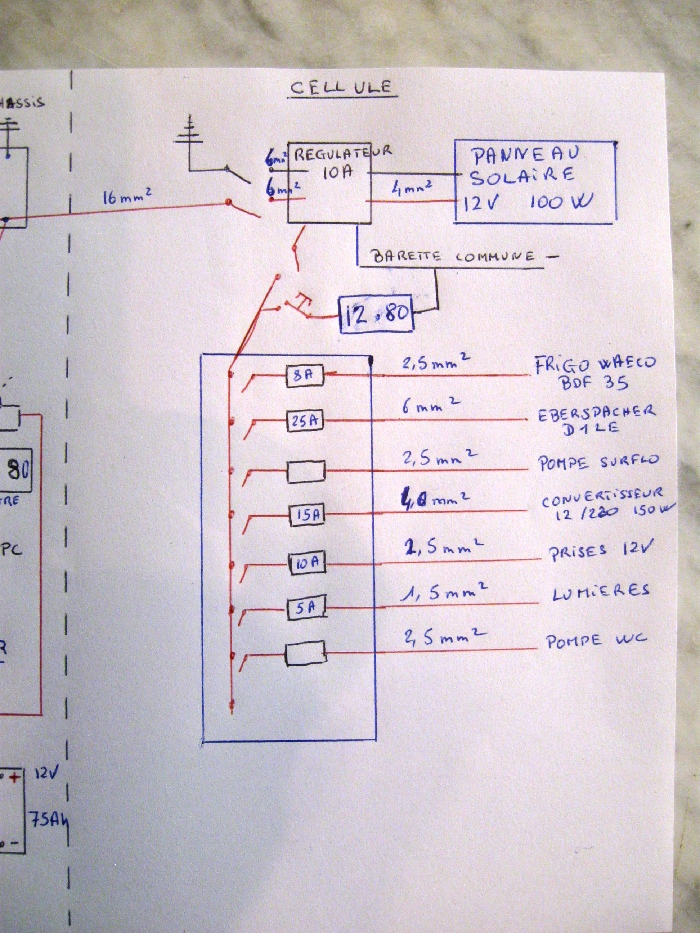 CELLULE
HASSIS
6mm²
REGULATEUR
10A
6mm²
4mm²
PANNEAU
SOLAIRE
12V 100W
16mm²
BARETTE COMMUNE -
12.80
8A
2,5mm²
FRIGO WAECO
BDF 35
25A
6mm²
EBERSPACHER
D1LE
2,5mm²
POMPE SURFLO
80
15A
4,0mm²
CONVERTISSEUR
12/220 150W
TRE
PC
10A
2,5mm²
PRISES 12V
5A
1,5mm²
LUMIERES
R
2,5mm²
POMPE WC
+ 12V
75Ah
-